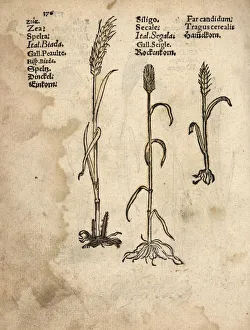 176
Zea:
Spelta:
Ital. Biada.
Gall. Peaulte.
Speltz
Dinckel
Einkorn.
Siligo.
Secale:
Ital. Segala:
Gall. Seigle.
Rockenkorn.
Far candidum:
Tragus cerealis